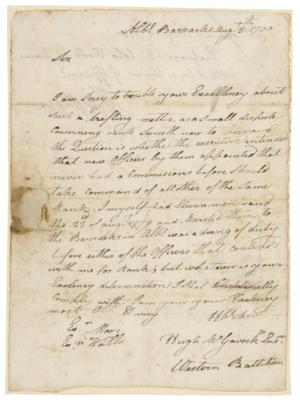 Alb. Barracks Augt. 5th 1780
Sir
I am Sorry to trouble your Excellency about
such a trifling matter, as a small dispute
concerning rank Sir will now to
the Question is whether the executive intended
that new Officers by them appointed that
never had a Commissions before Should
take command of all other of the Same
Rank. I myself had Eleven men raised
23d of august 1779 and Marched them to
the Barracks in Alb. was doing of duty
before either of the Officers that contends
with me for Rank; but whatever is your
Excelency determination I shal
Comply with. I am your Excelency
most
Hble
Esn. Moor
Esn. Wallis
Hugh McGavock Esn.
Western Battalion